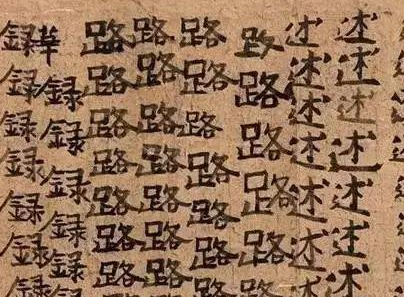 述述述述述述述
述述述述述述述
路路路路路路
路路路路路路路
路路路路路路路
路路路路路路路
録録録録録
録録録録録録録